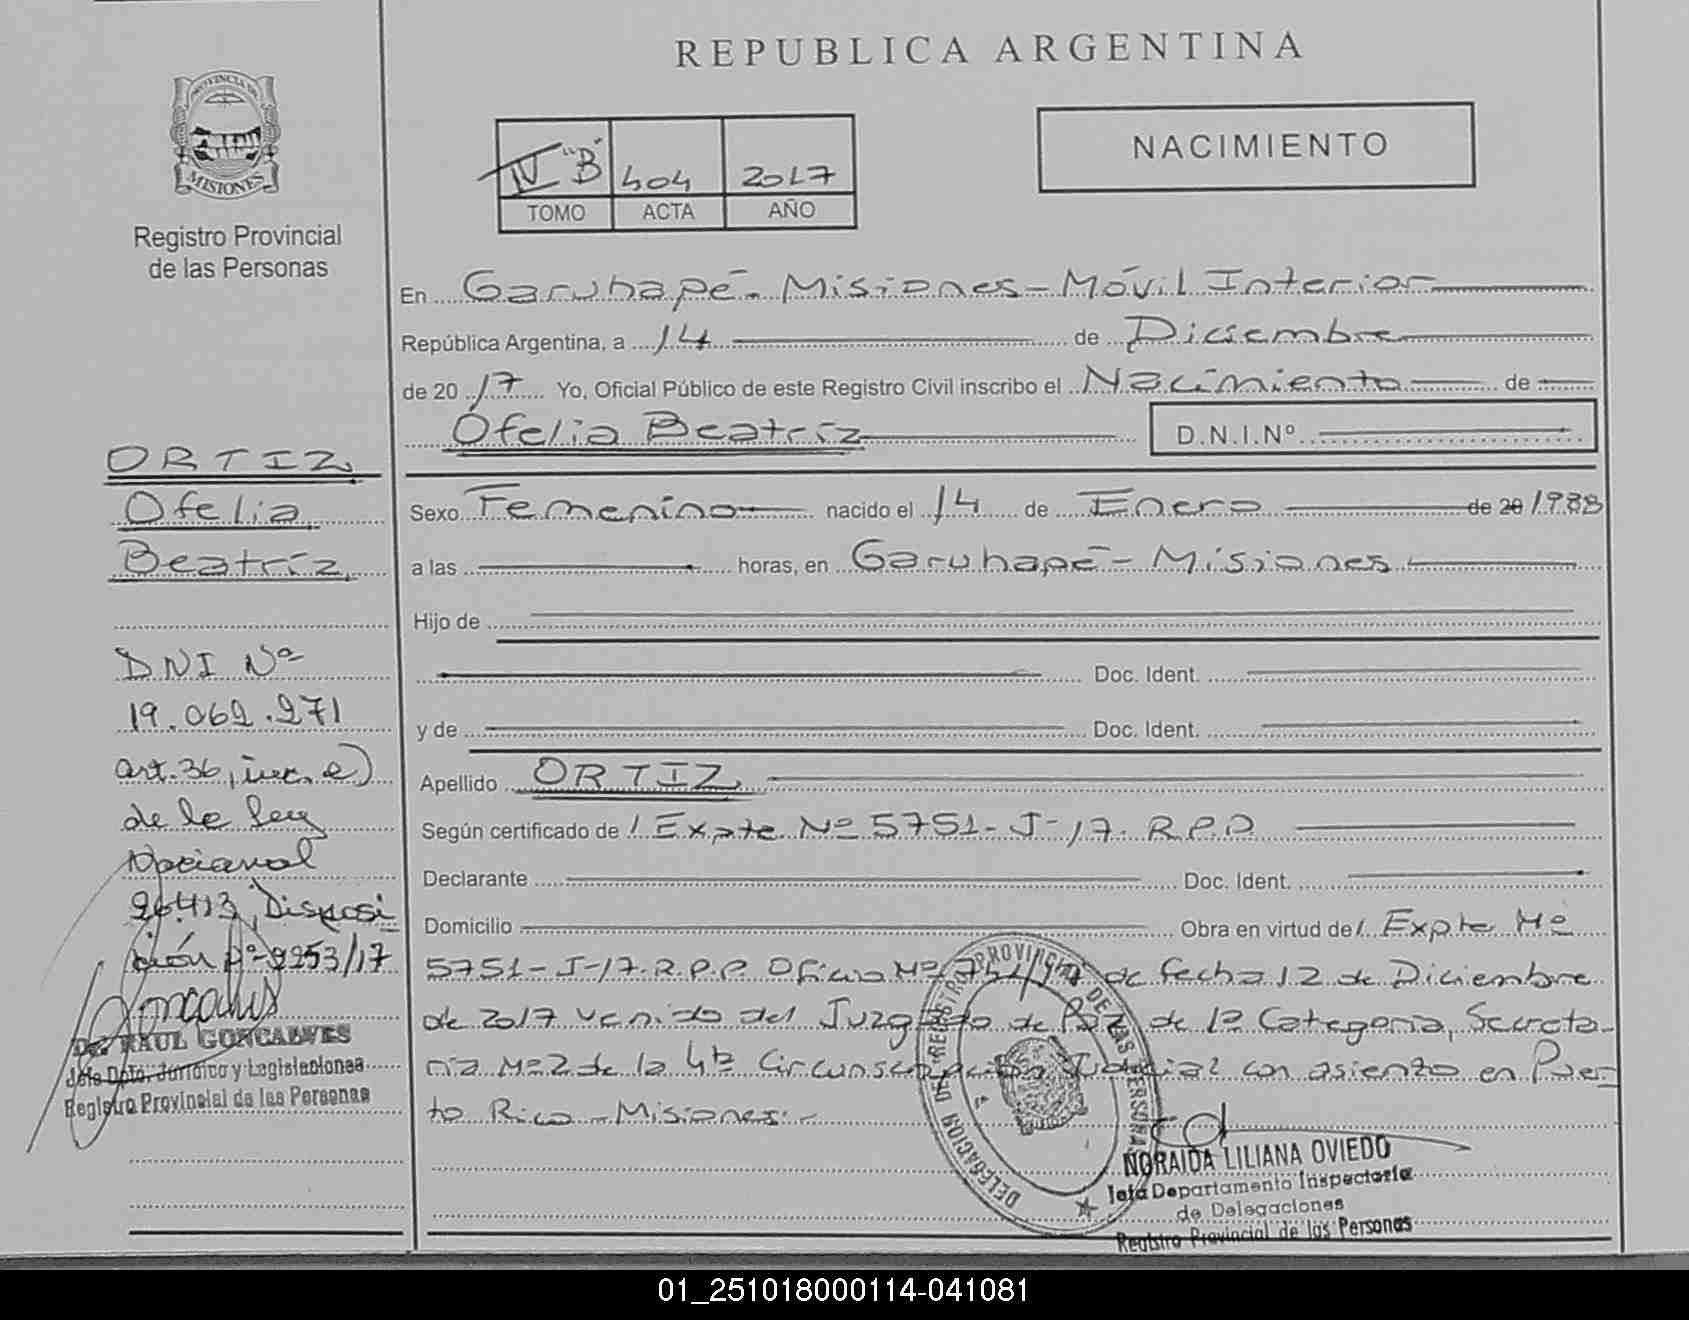 REPUBLICA ARGENTINA
PROVINCIA DE
MISIONES
Registro Provincial
de las Personas
IV "B" 404 2017
TOMO ACTA AÑO
NACIMIENTO
En Garuhapé - Misiones - Móvil Interior
República Argentina, a 14 de Diciembre
de 2017 Yo, Oficial Público de este Registro Civil inscribo el Nacimiento de
Ofelia Beatríz D.N.I.Nº
Sexo Femenino nacido el 14 de Enero de 20 1988
a las horas, en Garuhapé - Misiones
Hijo de
Doc. Ident.
y de Doc. Ident.
Apellido ORTIZ
Según certificado de / Expte Nº 5751-J-17. R.P.P
Declarante Doc. Ident.
Domicilio Obra en virtud de / Expte Nº
5751-J-17.R.P.P. Oficio Nº de fecha 12 de Diciembre
de 2017 venido del Juzgado de Paz de 1ª Categoría, Secreta-
ria Nº 2 de la 4ta Circunscripción Judicial con asiento en Puer-
to Rico - Misiones. -
ORTIZ
Ofelia
Beatríz
DNI Nº
19.062.271
art. 36, inc. e)
de la Ley
Nacional
26413, Disposi
ción Nº 2253/17
Goncalves
Dr. RAUL GONCALVES
Jefe Dpto. Jurídico y Legislaciones
Registro Provincial de las Personas
DELEGACION DEL REGISTRO PROVINCIAL DE LAS PERSONAS
NORAIDA LILIANA OVIEDO
Jefa Departamento Inspectoría
de Delegaciones
Registro Provincial de las Personas
01_251018000114-041081